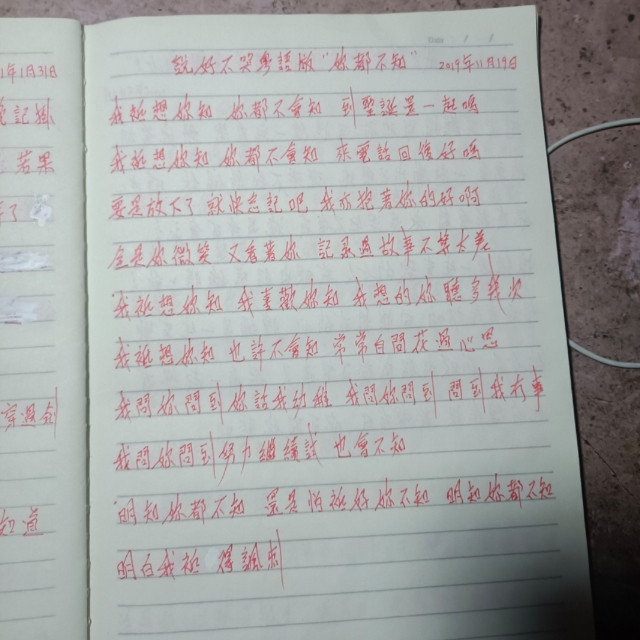 說好不哭粵語版“你都不知” 2019年11月19日
我祗想你知 你都不會知 到聖誕是一起嗎
我祗想你知 你都不會知 來電話回復好嗎
要是放下了 就快忘記吧 我亦抱着你的好啊
全是你微笑 又看著你 記錄盡故事不算太差
我祗想你知 我喜歡你知 我想的你聽多幾次
我祗想你知 也許不會知 常常自問花過心思
我問你問到你話我幼稚 我問你問到 問到我有事
我問你問到努力繼續試 也會不知
明知你都不知 還是怕祗好你不知 明知你都不知
明白我祗 得諷刺
1年1月31日
若果
知道